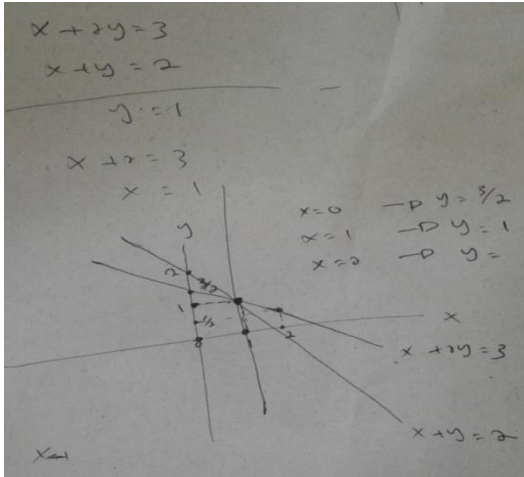 x + 2y = 3
x + y = 2
y = 1
x + 2 = 3
x = 1
x = 0 → y = 3/2
x = 1 → y = 1
x = 2 → y =
y
2
3/2
1
1/2
0
2
x
x + 2y = 3
x + y = 2